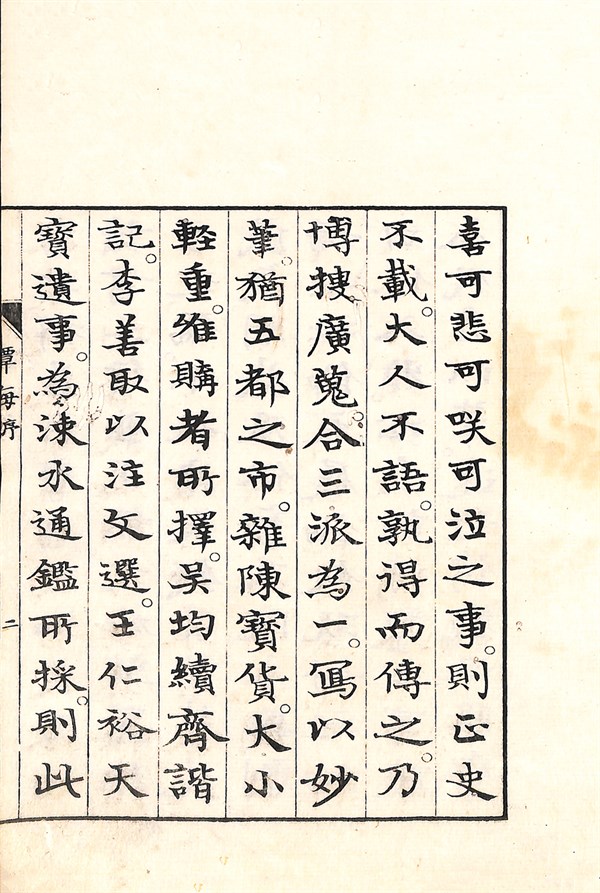 喜可悲可咲可泣之事。則正史
不載。大人不語。孰得而傳之。乃
博捜廣蒐。合三派為一。寫以妙
筆。猶五都之市。雜陳寶貨。大小
軽重。唯購者所擇。吴均續齊諧
記。李善取以注文選。王仁裕天
寶遺事。為涑水通鑑所採。則此
譚海序
二